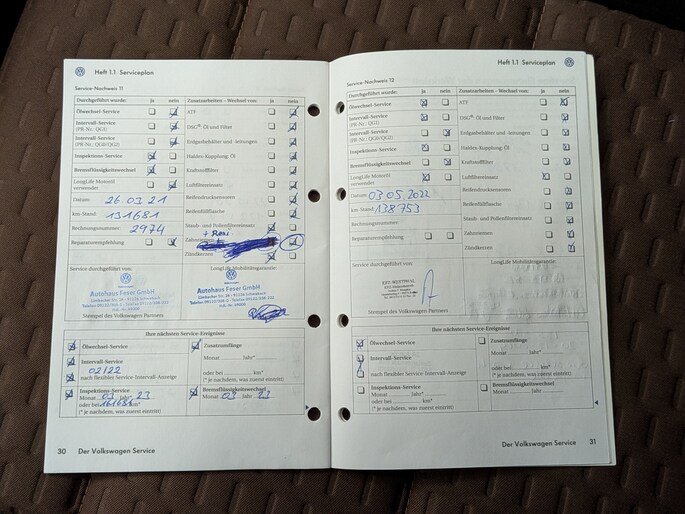 Heft 1.1 Serviceplan
Service-Nachweis 11
Durchgeführt wurde: ja nein
Ölwechsel-Service
Intervall-Service
(PR-Nr.: QG1)
Intervall-Service
(PR-Nr.: QG0/QG2)
Inspektions-Service
Bremsflüssigkeitswechsel
LongLife Motoröl
verwendet
Datum: 26.03.21
km-Stand: 131681
Rechnungsnummer: 2974
Reparaturempfehlung
Zusatzarbeiten - Wechsel von: ja nein
ATF
DSG®: Öl und Filter
Erdgasbehälter und -leitungen
Haldex Kupplung: Öl
Kraftstofffilter
Luftfiltereinsatz
Reifendruckensoren
Reifenfüllflasche
Staub- und Pollenfiltereinsatz
Zahnriemen
Zündkerzen
Service durchgeführt von:
Autohaus Feser GmbH
Stempel des Volkswagen Partners
LongLife Mobilitätsgarantie:
Autohaus Feser GmbH
Ihre nächsten Service-Ereignisse
Ölwechsel-Service
Intervall-Service
02/22
nach flexibler Service-Intervall-Anzeige
Inspektions-Service
Monat 03 Jahr* 23
oder bei km*
(* je nachdem, was zuerst eintritt)
Zusatzumfänge
Monat Jahr*
oder bei km*
(* je nachdem, was zuerst eintritt)
Bremsflüssigkeitswechsel
Monat 03 Jahr 23
30 Der Volkswagen Service
Heft 1.1 Serviceplan
Service-Nachweis 12
Durchgeführt wurde: ja nein
Ölwechsel-Service
Intervall-Service
(PR-Nr.: QG1)
Intervall-Service
(PR-Nr.: QG0/QG2)
Inspektions-Service
Bremsflüssigkeitswechsel
LongLife Motoröl
verwendet
Datum: 03.05.2022
km-Stand: 138753
Rechnungsnummer:
Reparaturempfehlung
Zusatzarbeiten - Wechsel von: ja nein
ATF
DSG®: Öl und Filter
Erdgasbehälter und -leitungen
Haldex Kupplung: Öl
Kraftstofffilter
Luftfiltereinsatz
Reifendruckensoren
Reifenfüllflasche
Staub- und Pollenfiltereinsatz
Zahnriemen
Zündkerzen
Service durchgeführt von:
KFZ-WESTPHAL
Stempel des Volkswagen Partners
LongLife Mobilitätsgarantie:
Ihre nächsten Service-Ereignisse
Ölwechsel-Service
Intervall-Service
nach flexibler Service-Intervall-Anzeige
Inspektions-Service
Monat Jahr*
oder bei km*
(* je nachdem, was zuerst eintritt)
Zusatzumfänge
Monat Jahr*
oder bei km*
(* je nachdem, was zuerst eintritt)
Bremsflüssigkeitswechsel
Monat Jahr
Der Volkswagen Service 31